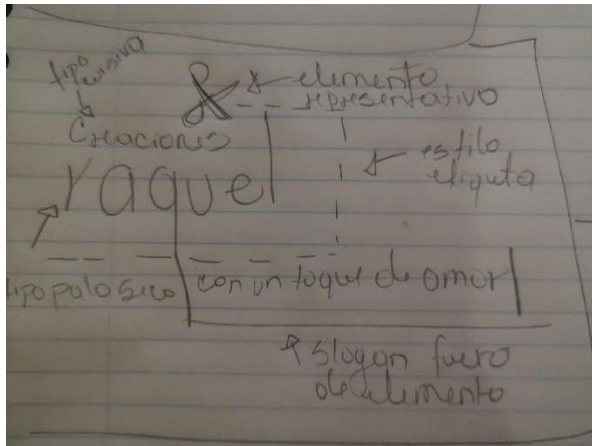 tipo
cursiva
elemento
representativo
Creaciones
estilo
etiqueta
raquel
tipo palo seco
con un toque de amor
Slogan fuera
de elemento